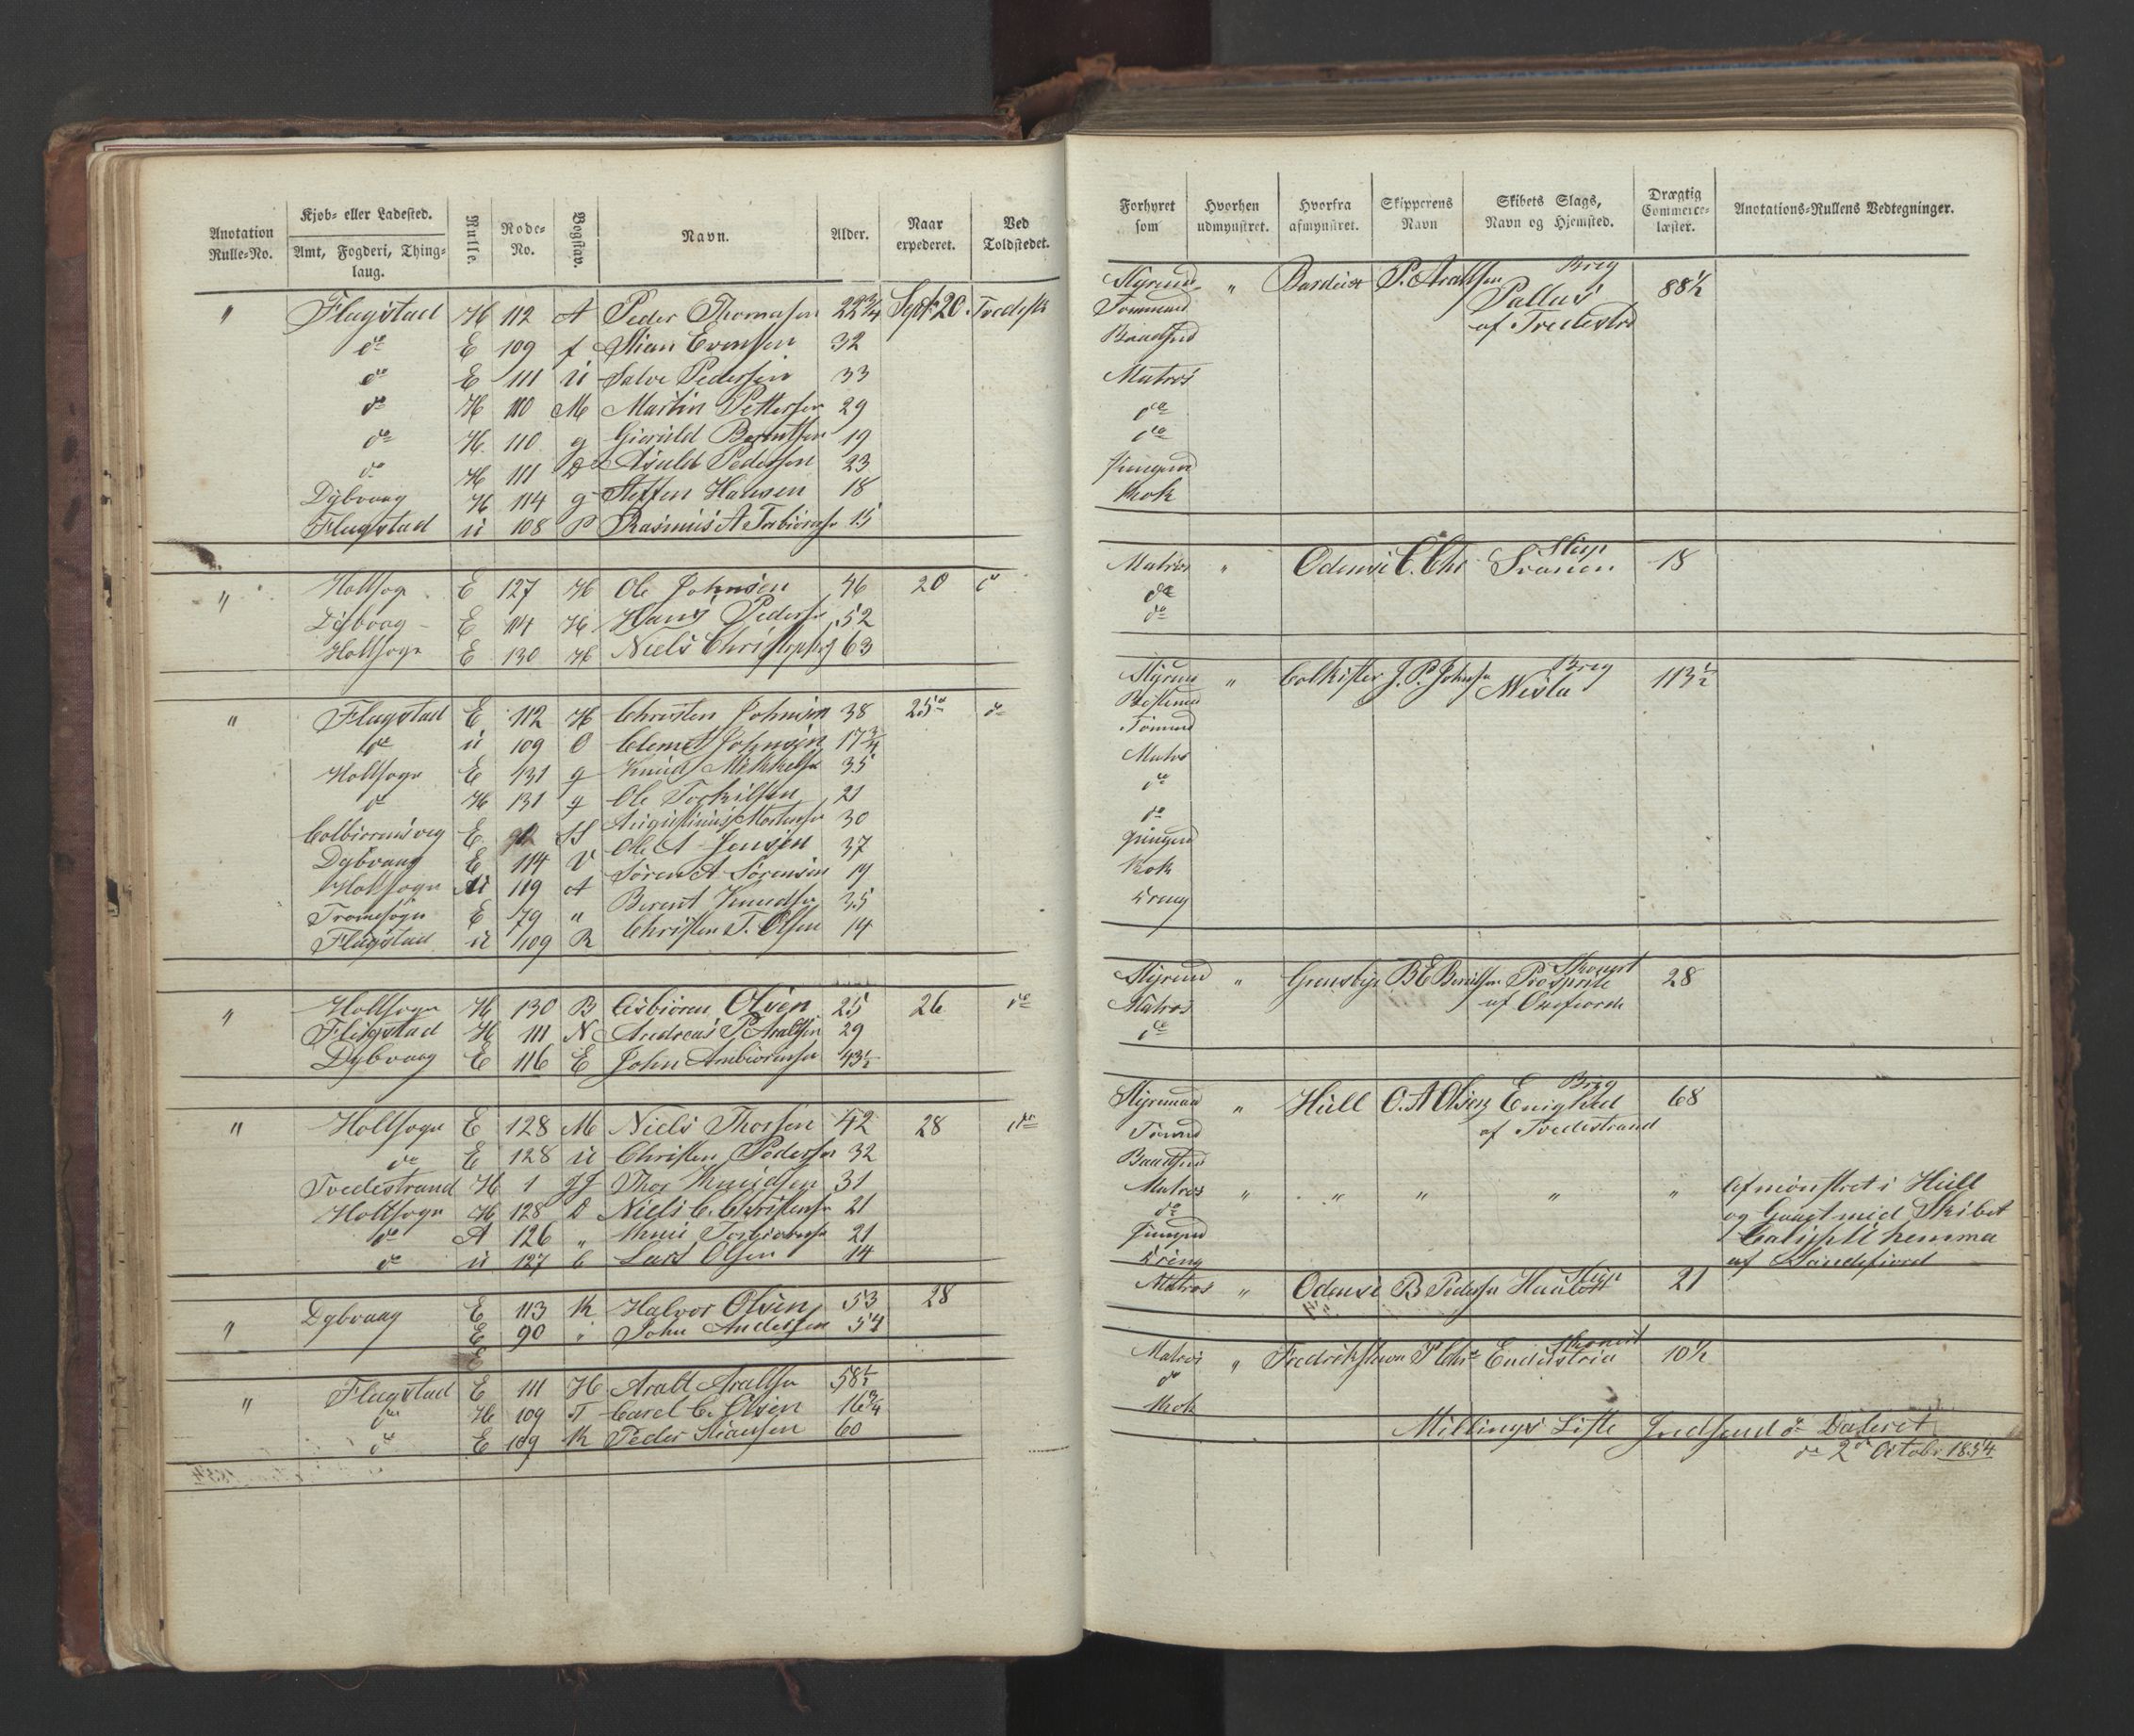 Anotation Rulle-No. | Kjøb- eller Ladested. Amt, Fogderi, Thinglaug. | Rulle. | Rode-No. | Bogstav. | Navn. | Alder. | Naar expederet. | Ved Toldstedet.
" Flagstad H 112 A Peder Thomasen 22 3/4 Sept 20. Tvedestr
do E 109 f Stian Evensen 32
do E 111 U Salve Pedersen 33
do H 110 M Martin Pettersen 29
do H 110 g Gieruld Berntsen 19
do H 111 Asuld Pedersen 23
Dybvaag H 114 g Steffen Hansen 18
Flagstad U 108 P Rasmus A Torbiørnsen 15
" Holtsogn E 127 H Ole Johnsen 46 20 do
Dybvaag E 114 H Hans Pedersen 52
Holtsogn E 130 H Niels Christophers 63
" Flagstad E 112 H Christen Johnsen 38 25 do
do U 109 O Clemet Johnsen 17 3/4
Holtsogn E 131 g Knud Mikkelsen 35
do H 131 g Ole Torkilsen 21
Colbiørnsveg E SS Augustinus Mortensen 30
Dybvaag E 114 V Ole A Jensen 37
Holtsogn U 119 A Søren A Sørensen 19
Tromøsogn E 79 " Berent Knudsen 35
Flagstad U 109 R Christen T. Olsen 14
" Holtsogn H 130 B Esbiøren Olsen 25 26 do
Flagstad H 111 N Andreas P Araltsen 29
Dybvaag E 116 E John Ambiørnsen 43 1/2
" Holtsogn E 128 M Niels Thorsen 42 28 do
do E 128 U Christen Pedersen 32
Tvedestrand H 1 JJ Thor Knudsen 31
Holtsogn H 128 D Niels C. Christensen 21
do A 126 " Knud Torbiørnsen 21
do U 127 C Lars Olsen 14
" Dybvaag E 113 K Halvor Olsen 53 28
E 90 " John Andersen 54
" Flagstad E 111 H Aralt Araltsen 58 1/2
do H 109 T Carel C. Olsen 16 3/4
do E 109 K Peder Stiansen 60
Forhyret som | Hvorhen udmynstret. | Hvorfra afmynstret. | Skipperens Navn | Skibets Slags, Navn og Hjemsted. | Drægtig Commerce-læster. | Anotations-Rullens Vedtegninger.
Styrmd " Bordeux P. Araltsen Brig Pallas 88 1/2
Tømmmd af Tvedestrd
Baadsmd
Matros
do
do
Jungmd
Kok
Matros " Odense C. Chr Slup Svanen 18
do
do
Styrmd " Colkister J. P. Johnsen Brig Nesla 113 1/2
Tømmd
Matros
do
do
Jungmd
Kok
Dreng
Styrmd " Grensbye B E Berntsen Skonert Prosprite 28
Matros
do
Styrmand " Hull O. A Olsen Brig Enighed 68
Tømmd af Tvedestrand
Baadsmd
Matros " " " " " Afmønstret i Hull
do og Gaaet med Skibet
Jungmd hemma
Dreng af Sandefiord
Matros " Odense B Pedersen Slup Haabet 21
Matros " Fredrikshavn P Chr Skonert Endustria 10 1/2
do
Kok
Mellings Liste Indsend do Dateret
do 2 October 1854